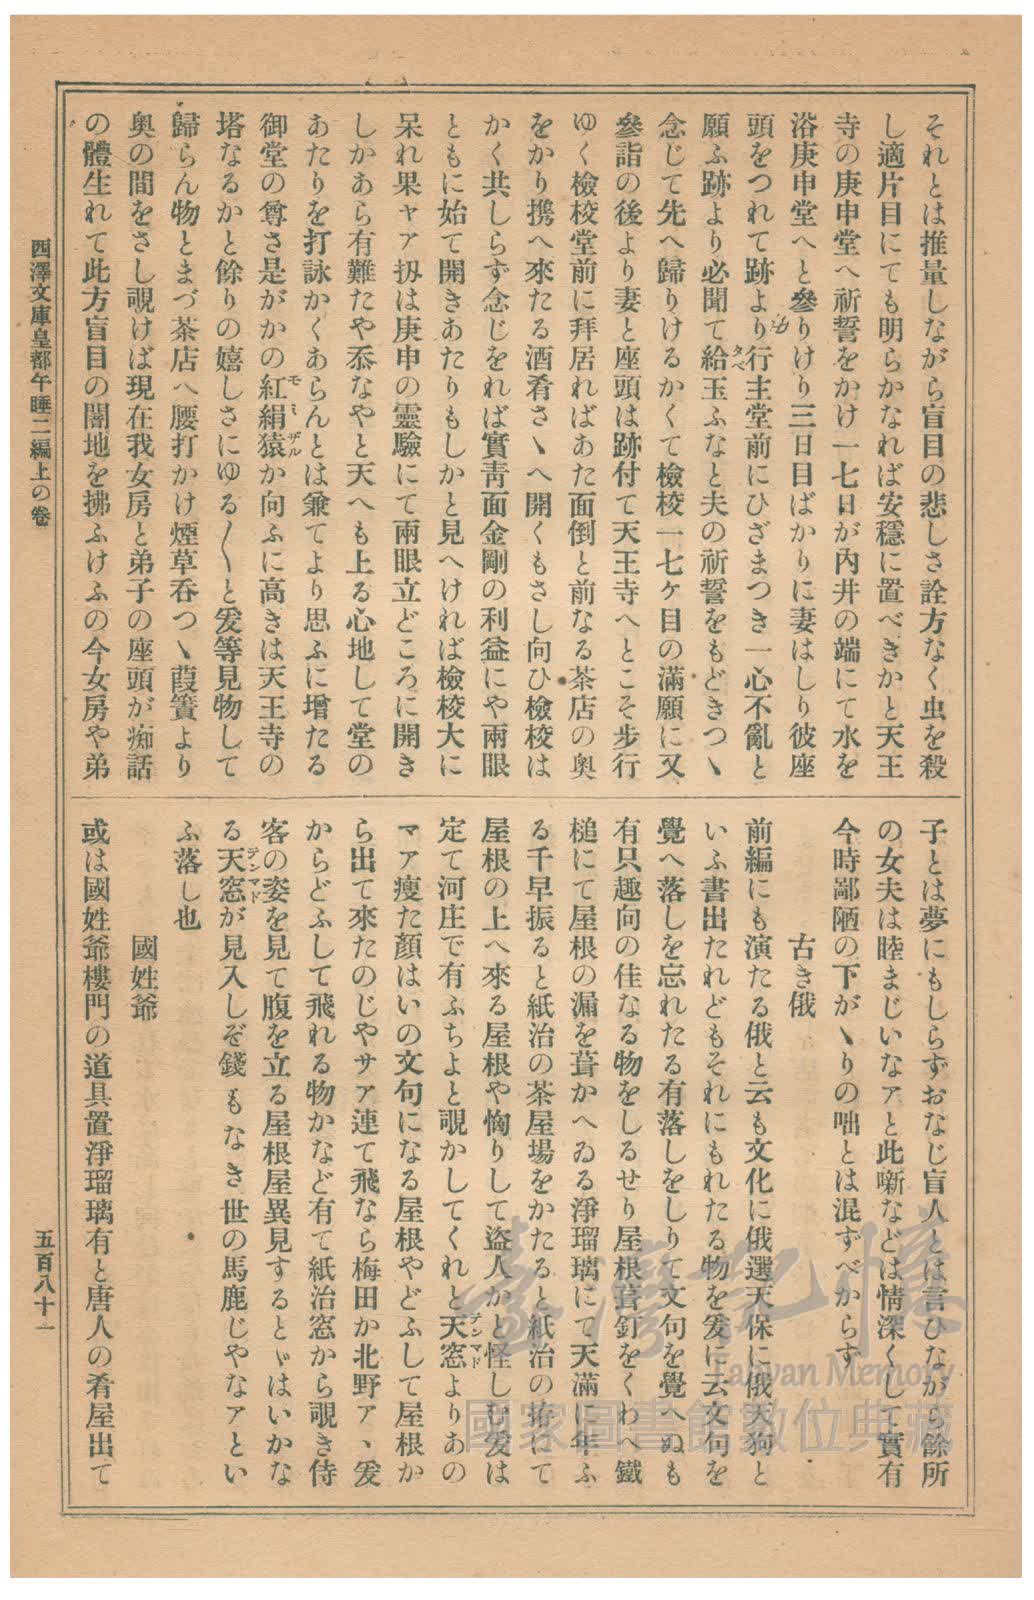 それとは推量しながら盲目の悲しさ詮方なく虫を殺
し適片目にても明らかなれば安穩に置べきかと天王
寺の庚申堂へ祈誓をかけ一七日が內井の端にて水を
浴庚申堂へと參りけり三日目ばかりに妻はしり彼座
頭をつれて跡より行主堂前にひざまつき一心不亂と
願ふ跡より必聞て給玉ふなと夫の祈誓をもどきつゝ
タベ
念じて先へ歸りけるかくて檢校一七ケ目の滿願に又
參詣の後より妻と座頭は跡付て天王寺へとこそ步行
ゆく檢校堂前に拜居ればあた面倒と前なる茶店の奥
をかり携へ來たる酒肴さゝへ開くもさし向ひ檢校は
かく共しらず念じをれば實靑面金剛の利益にや兩眼
ともに始て開きあたりもしかと見へければ檢校大に
呆れ果ヤア扨は庚申の靈驗にて兩眼立どころに開き
しかあら有難たや忝なやと天へも上る心地して堂の
あたりを打詠かくあらんとは兼てより思ふに增たる
御堂の尊さ是がかの紅絹猿か向ふに高きは天王寺の
モミザル
塔なるかと餘りの嬉しさにゆる〳〵と爰等見物して
歸らん物とまづ茶店へ腰打かけ煙草呑つゝ葭簀より
奥の間をさし覗けば現在我女房と弟子の座頭が痴話
の體生れて此方盲目の闇地を拂ふけふの今女房や弟
子とは夢にもしらずおなじ盲人とは言ひながら餘所
の女夫は睦まじいなアと此噺などは情深くして實有
今時鄙陋の下がゝりの咄とは混ずべからず
古き俄
前編にも演たる俄と云も文化に俄選天保に俄天狗と
いふ書出たれどもそれにもれたる物を爰に云文句を
覺へ落しを忘れたる有落しをしりて文句を覺へぬも
有只趣向の佳なる物をしるせり屋根葺釘をくわへ鐵
槌にて屋根の漏を葺かへゐる淨瑠璃にて天滿に年ふ
る千早振ると紙治の茶屋場をかたると紙治の拵にて
屋根の上へ來る屋根や恟りして盜人かと怪しむ爰は
定て河庄で有ふちよと覗かしてくれと天窓よりあの
テンマド
マア瘦た顏はいの文句になる屋根やどふして屋根か
ら出て來たのじやサア連て飛なら梅田か北野ア丶爰
からどふして飛れる物かなど有て紙治窓から覗き侍
客の姿を見て腹を立る屋根屋異見するとゞはいかな
る天窓が見入しぞ錢もなき世の馬鹿じやなアとい
テンマド
ふ落し也
國姓爺
或は國姓爺樓門の道具置淨瑠璃有と唐人の肴屋出て
西澤文庫皇都午睡二編上の卷
五百八十一
臺灣記憶
Taiwan Memory
國家圖書館數位典藏